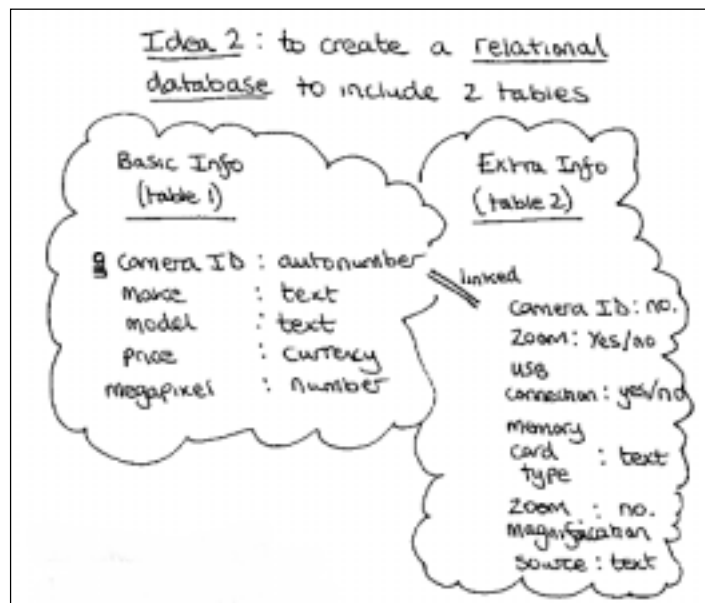 Idea 2 : to create a relational
database to include 2 tables
Basic Info
(table 1)
camera ID : autonumber
make : text
model : text
price : currency
megapixel : number
linked
Extra Info
(table 2)
camera ID : no.
Zoom : Yes/no
USB
connection : yes/no
memory
card
type : text
Zoom : no.
magnification
source : text